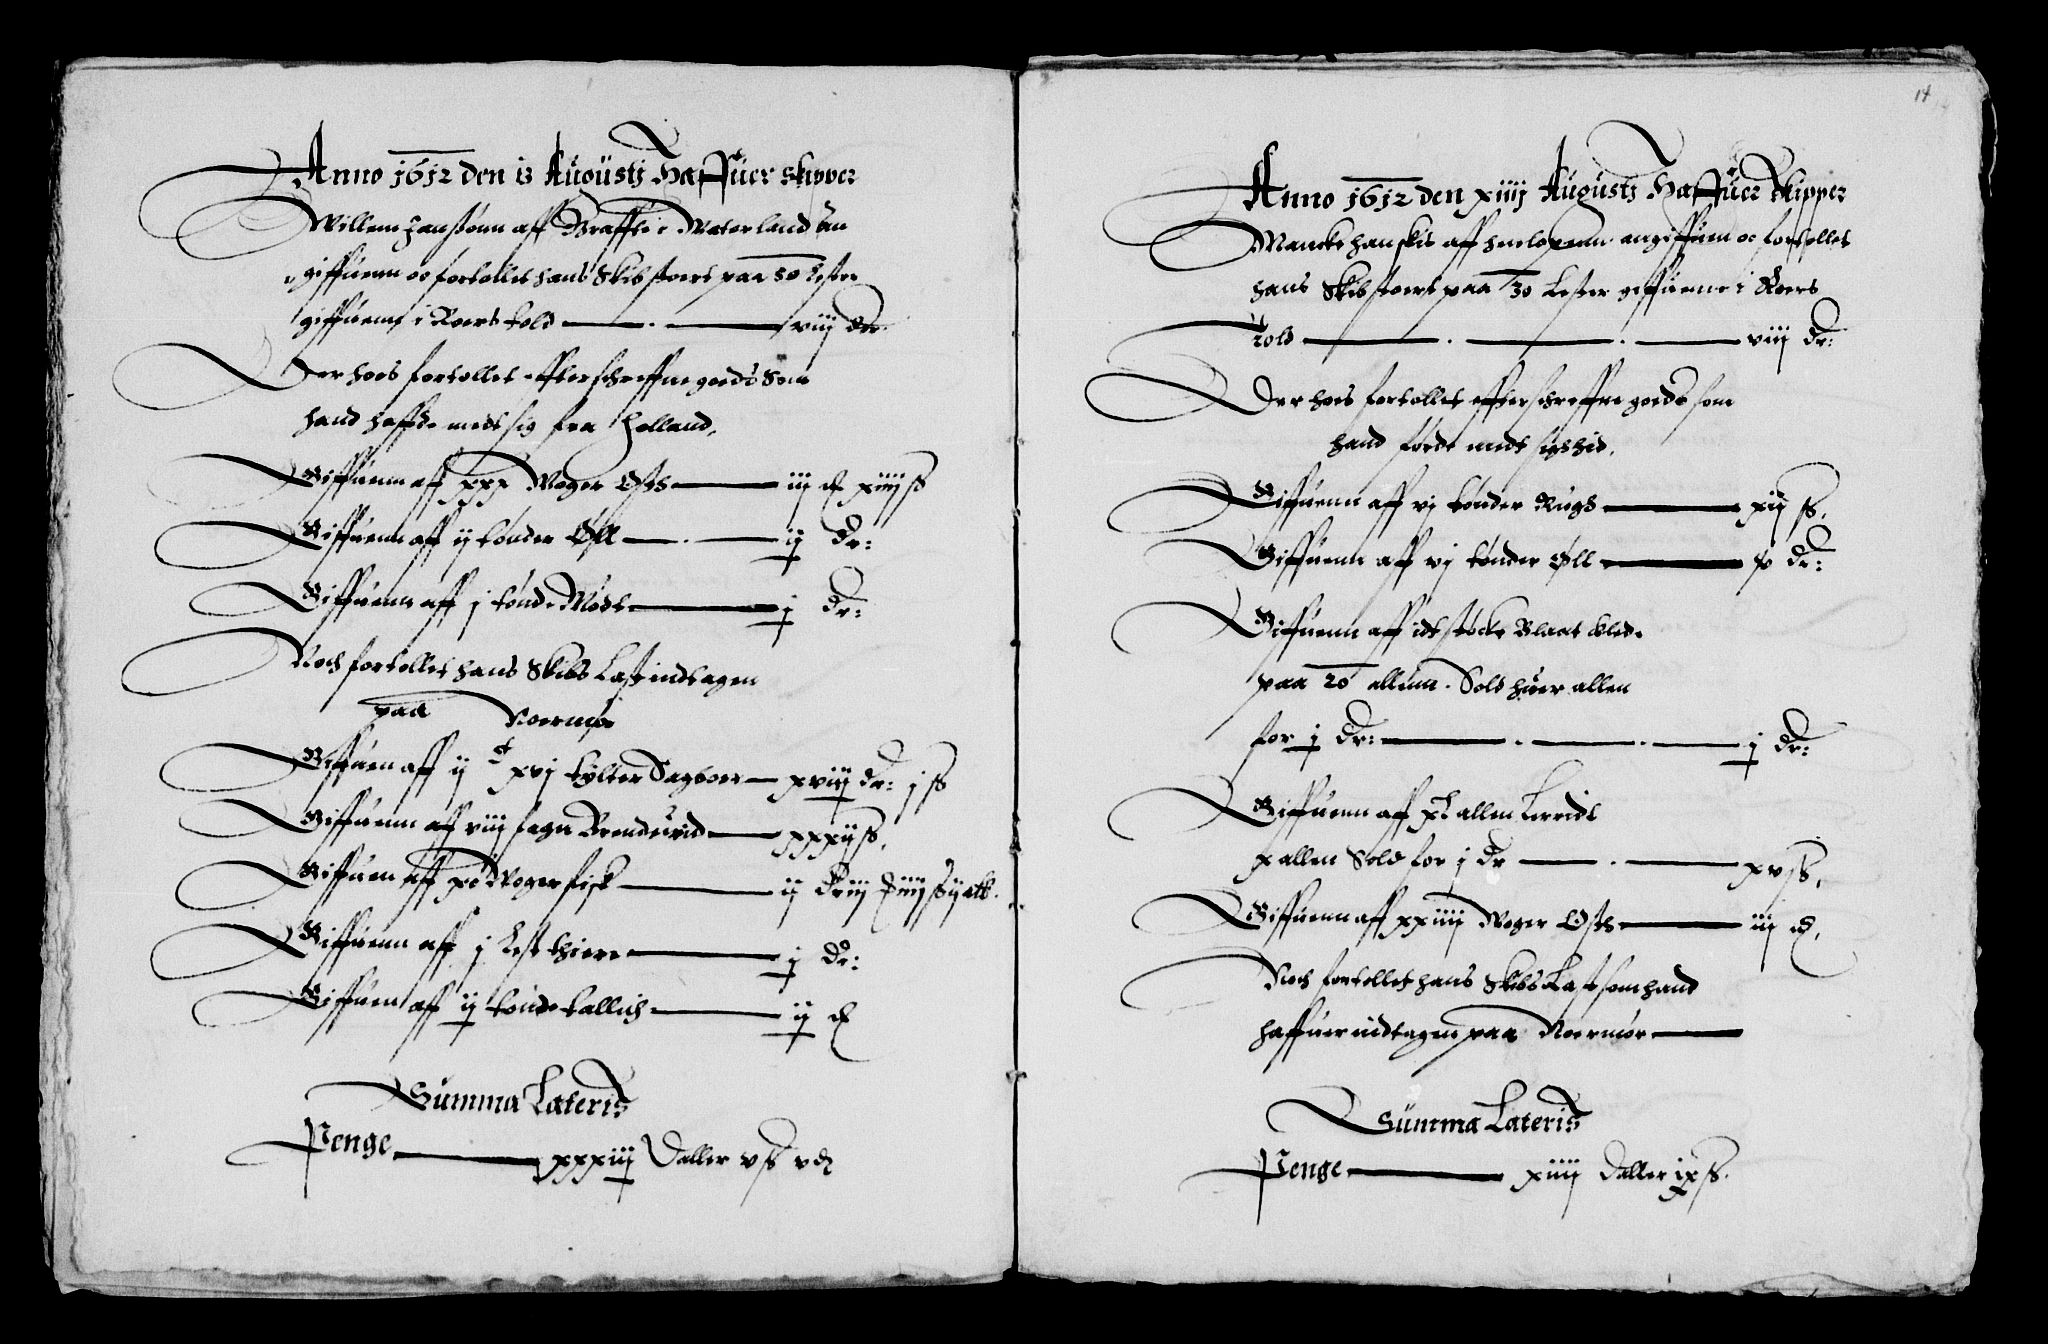 Anno 1612 den 13 Augustj Haffuer skipper
Willem hanssønn aff Graffte i Waterland an
giffuenn oc fortollet hans Skib stoert paa 50 Lester
giffuenn i Roers told — viij dr
Der hoes fortollet effterschreffne goeds Som
hand haffde medt sig fra Holland,
Giffuenn aff xxx Woger Osts — iij d xiiij ß
Giffuenn aff ij tønder Øll — ij dr:
Giffuenn aff j tønde Mødt — j dr:
Noch fortollet hans Skibs Last indtagen
paa Noermør
Giffuen aff ij c xvj tylter Sagboer — xviij dr: j ß
Giffuenn aff viij fagn Brendeuid — xxxij ß,
Giffuen aff Woger fisk — ij
Giffuenn aff j Lest thiere — j dr:
Giffuen aff ij tønde tallich — ij d
Summa Lateris
Penge — xxxiij Daller v ß v d
14
Anno 1612 den xiiij Augustj Haffuer Skipper
Mancke hanskis aff henlopenn angiffuen oc fortollet
hans Skib stoert paa 30 Lester giffuenn i Roers
Told — viij dr:
Der hoes fortollet effterschreffne goeds som
hand førde medt sig hid,
Giffuenn aff vj tønder Rugs — xij ß,
Giffuenn aff vj tønder Øll — dr:
Giffuenn aff idt støcke Blaat klede
paa 20 allenn. Sold huer allen
for j dr: — j dr:
Giffuenn aff allen Lerridt
x allen Sold for j dr — xv ß,
Giffuenn aff xxiiij Woger Osts — iij d,
Noch fortollet hans Skibs Last som hand
haffuer indtagen paa Noermør —
Summa Lateris
Penge — xiiij Daller ix ß.